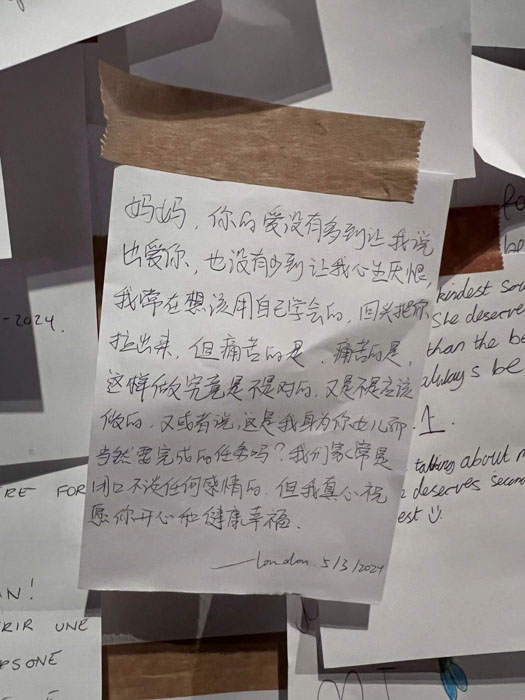 妈妈，你的爱没有多到让我说
出爱你，也没有少到让我心生厌恨，
我常在想该用自己学会的，回头把你
拉出来，但痛苦的是，痛苦的是，
这样做究竟是不是对的，又是不是应该
做的，又或者说，这是我身为你女儿而
当然要完成的任务吗？我们家常是
闭口不谈任何感情的，但我真心祝
愿你开心和健康幸福.
—London. 5/3/2024
-2024.
kindest
She deserve
than the
always be
1.
talking about
deserves
est
RE FOR
N!
RIR UNE